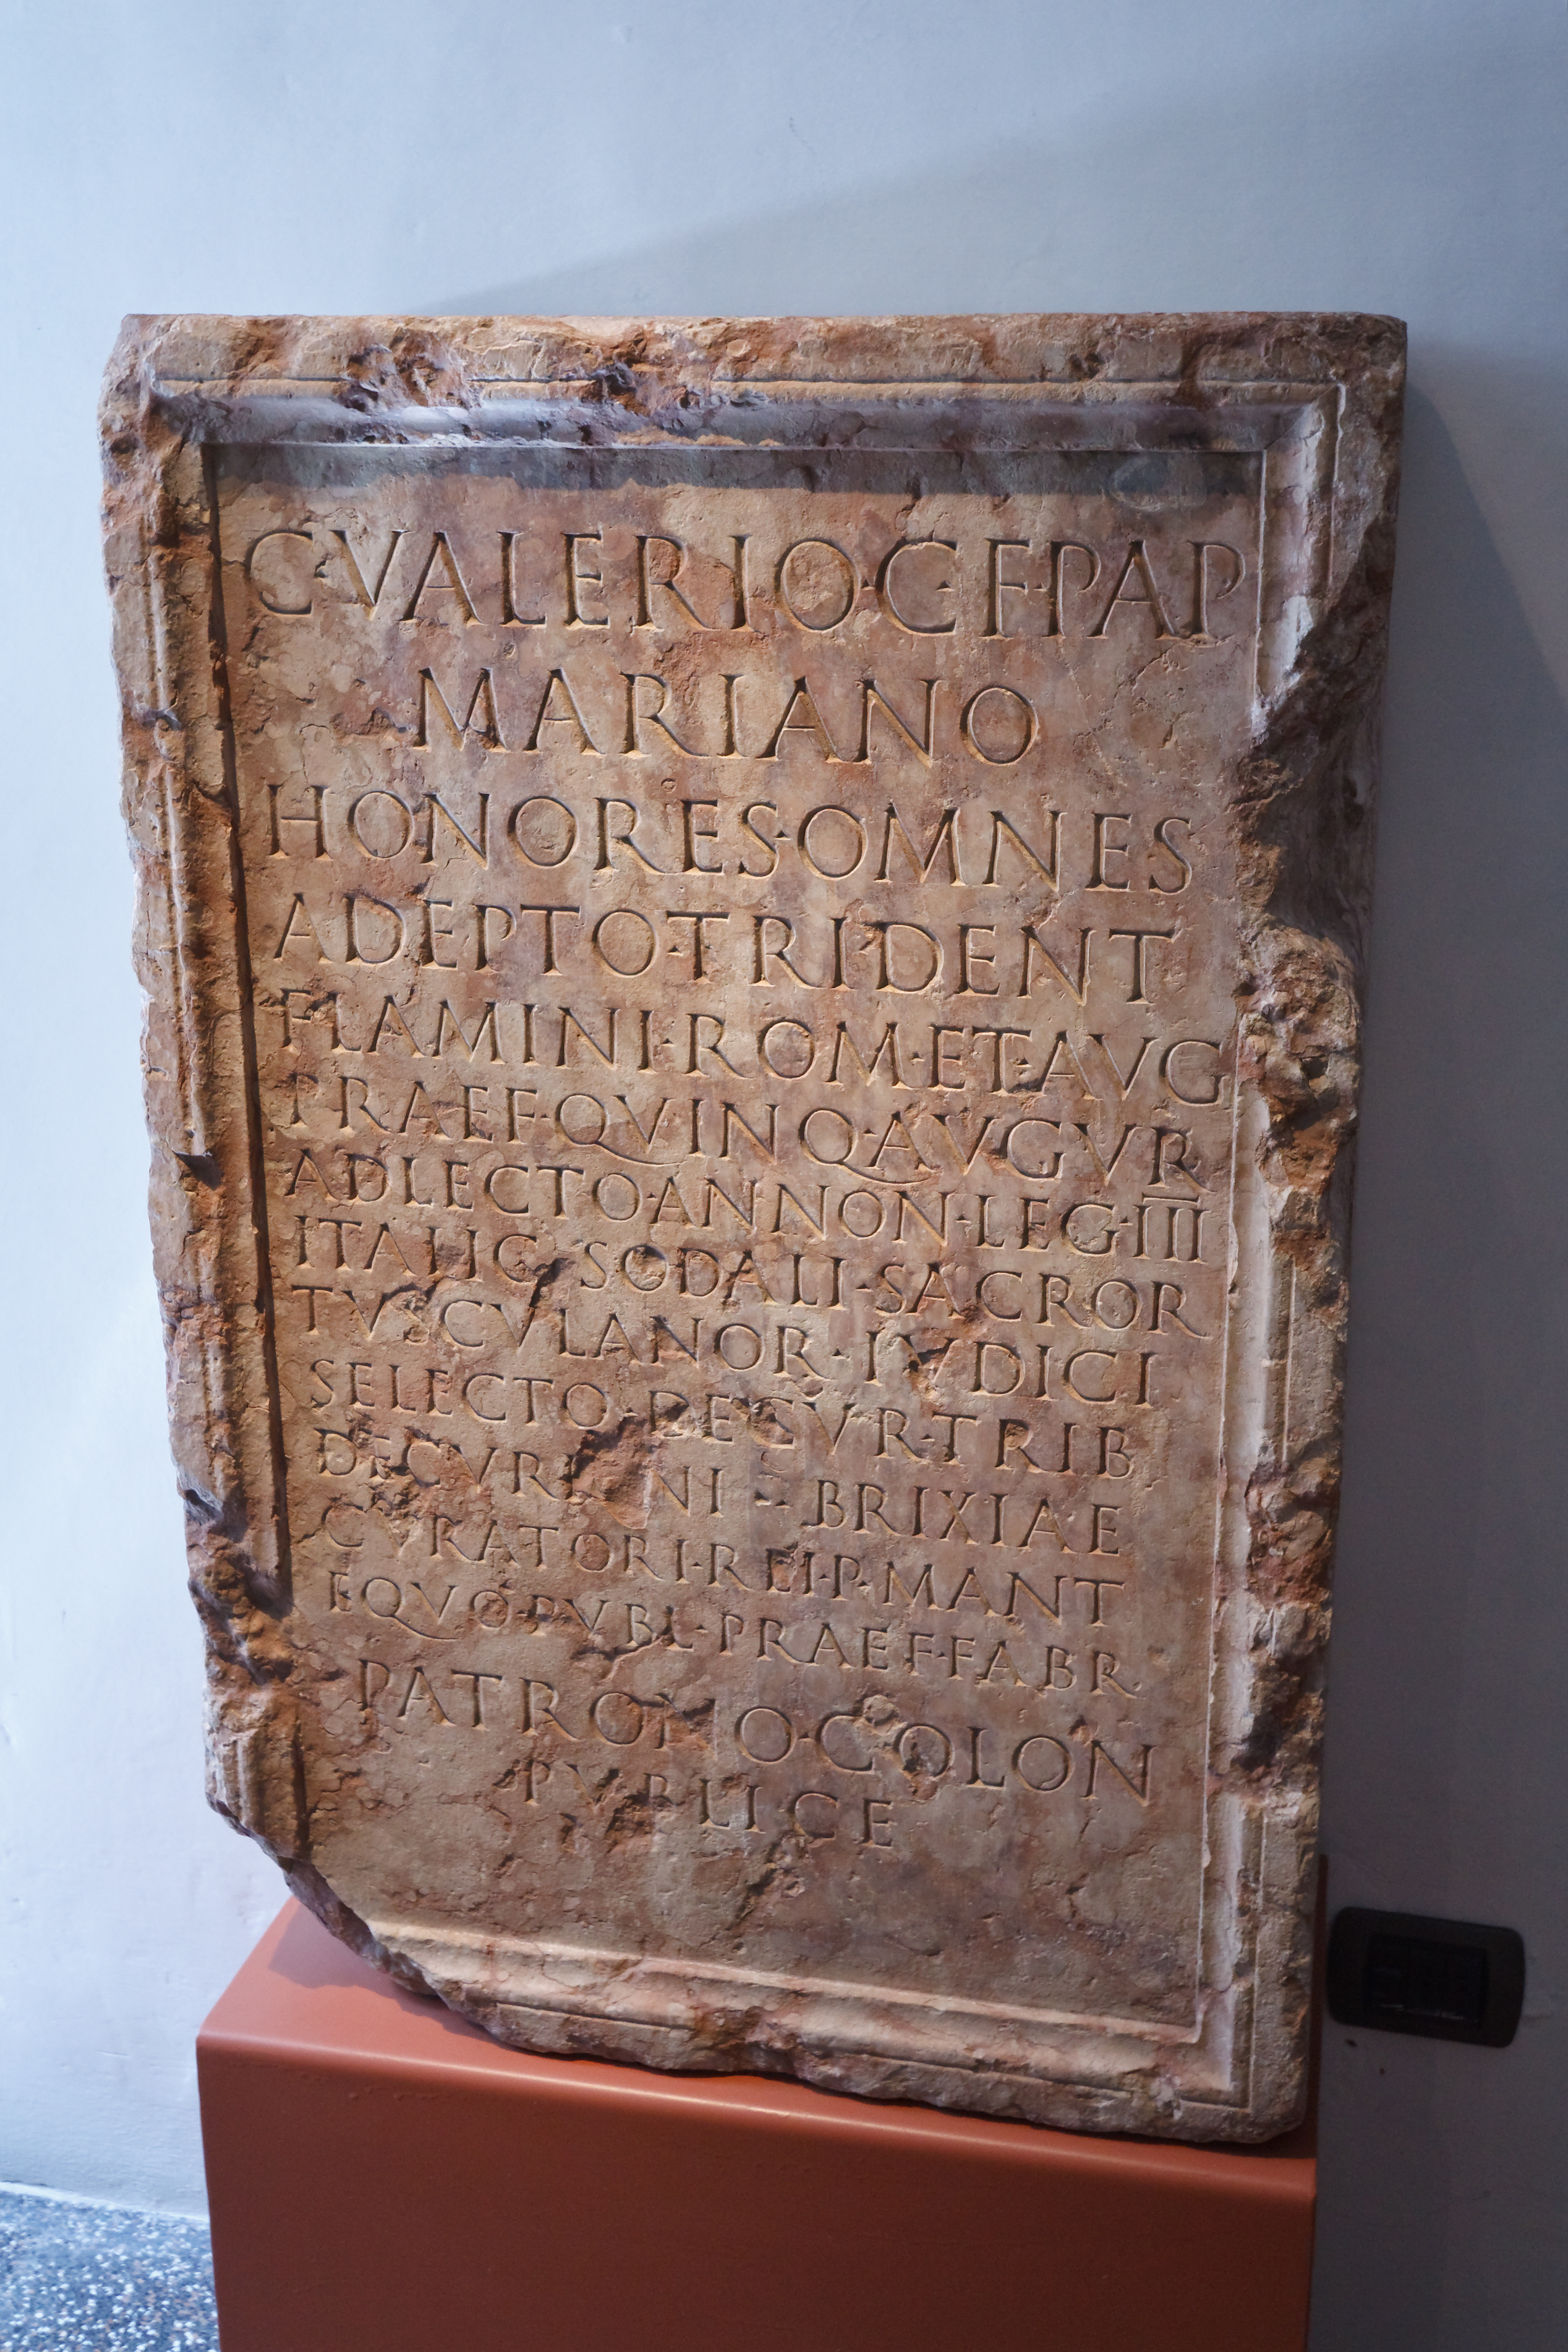 C·VALERIO·C·F·PAP
MARIANO
HONORES·OMNES
ADEPTO·TRIDENT
FLAMINI·ROM·ET·AVG
PRAEF·QVINQ·AVGVR
ADLECTO·ANNON·LEG·III
ITALIC·SODALI·SACROR
TVSCVLANOR·IVDICI
SELECTO·DECVR·TRIB
DECVRIONI · BRIXIAE
CVRATORI·REI·P·MANT
EQVO·PVBL·PRAEF·FABR
PATRONO·COLON
PVBLICE